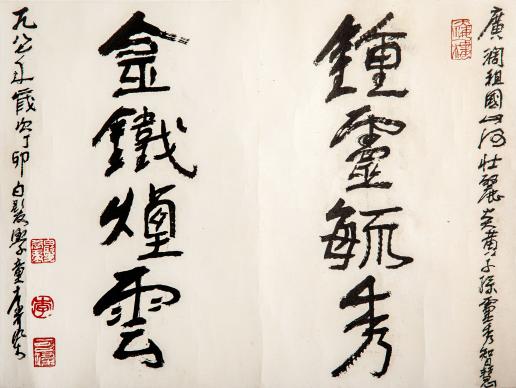 廣闊祖國山河壯麗炎黃子孫靈秀智慧
鍾靈毓秀
金鐵煙雲
一九八七年歲次丁卯白髮學童